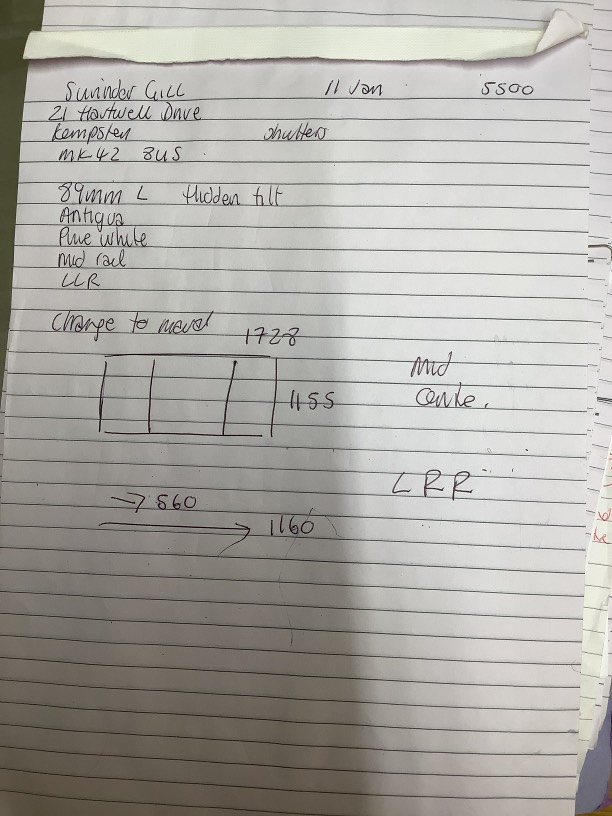 Surinder Gill 11 Jan 5500
21 Hartwell Drive
Kempston shutters
MK42 8US
89mm L Hidden tilt
Antigua
Pure white
Mid rail
LLR
Change to
1728
Mid
1155 Centre.
LRR
→ 560
1160